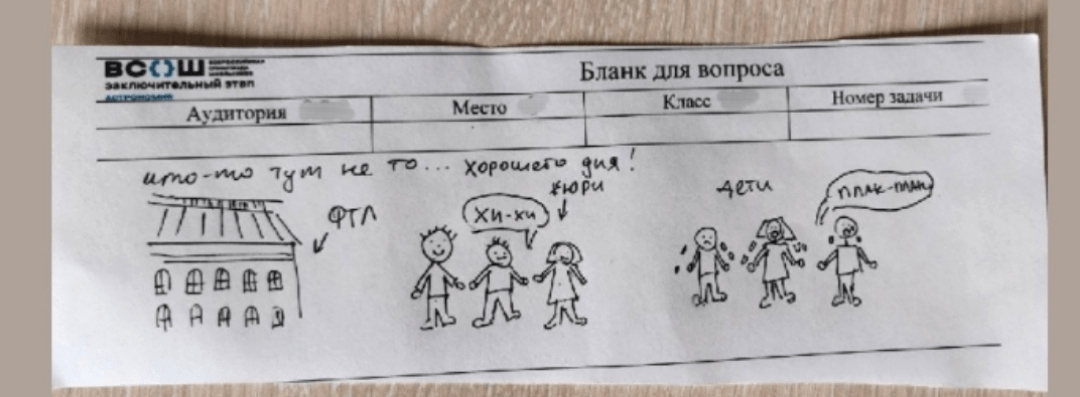 ВСОШ ВСЕРОССИЙСКАЯ ОЛИМПИАДА ШКОЛЬНИКОВ
заключительный этап
АСТРОНОМИЯ
Бланк для вопроса
Аудитория Место Класс Номер задачи
что-то тут не то... хорошего дня!
ФТЛ
хи-хи
жюри
дети
плак-плак